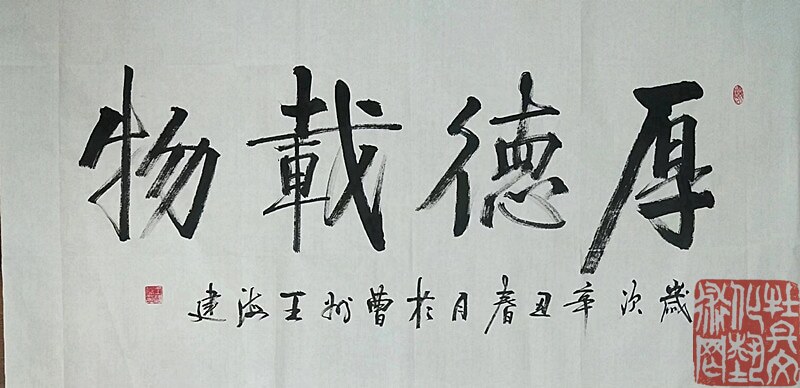 厚德載物
歲次辛丑春月於曹州王海建